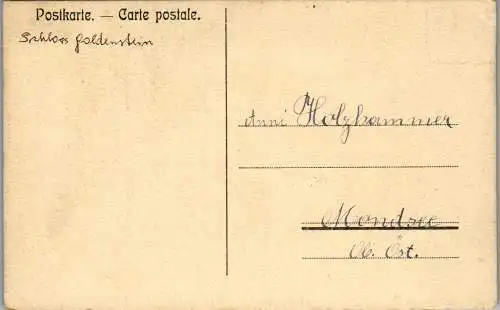 Postkarte. — Carte postale.
Schloss Goldenstein
Anni Holzhammer
Mondsee
Ob. Öst.